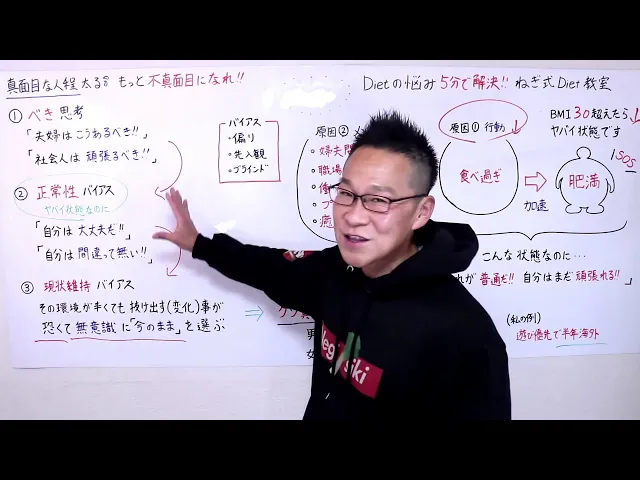 真面目な人程 太る!? もっと 不真面目になれ!!
① べき思考
「夫婦は こうあるべき!!」
「社会人は 頑張るべき!!」
② 正常性 バイアス
ヤバイ状態なのに
「自分は 大丈夫だ!!」
「自分は 間違って無い!!」
③ 現状維持 バイアス
その環境が辛くても 抜け出す(変化)事が
恐くて 無意識に「今のまま」を選ぶ
バイアス
・偏り
・先入観
・ブラインド
Dietの悩み 5分で解決!! ねぎ式 Diet 教室
原因②
・夫婦
・職場
原因① 行動
食べ過ぎ
加速
BMI 30超えたら
ヤバイ状態です
SOS
肥満
こんな状態なのに…
が 普通だ!! 自分はまだ 頑張れる!!
(私の例)
遊び優先で半年海外